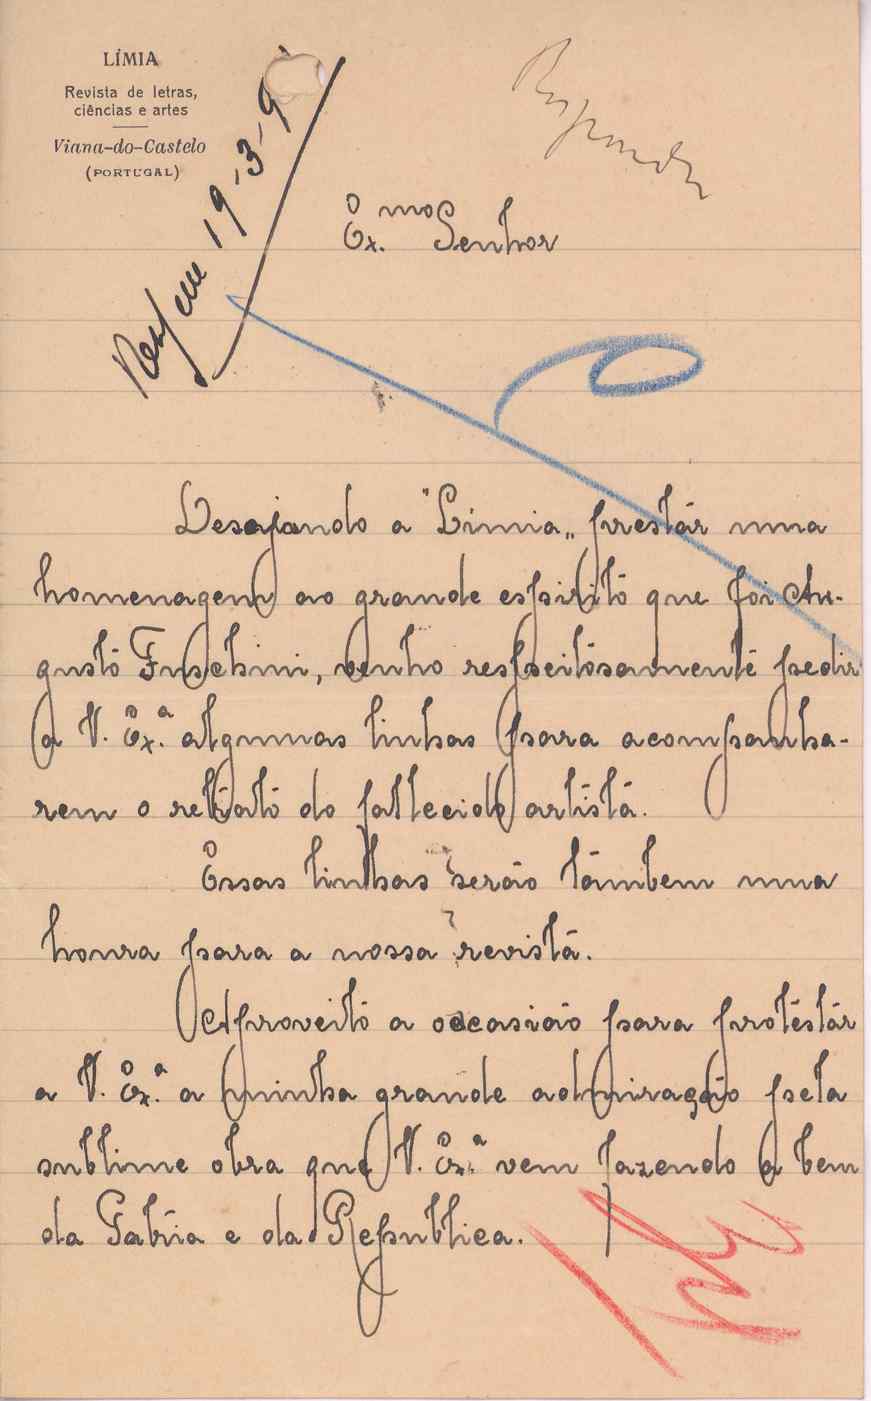 LÍMIA
Revista de letras,
ciências e artes
Viana-do-Castelo
(PORTUGAL)
Resp em 19-3-9
Responder
Ex.mo Senhor
Desejando a "Límia„ prestár uma
homenagem ao grande espirito que foi Au-
gusto Fuschini, venho respeitosamente pedir
a V. Ex.ª algumas linhas para acompanha-
rem o retrato do fallecido artista.
Essas linhas serão tâmbem uma
honra para a nossa revista.
Aproveito a occasião para protéstár
a V. Ex.ª a minha grande admiração pela
sublime obra que V. Ex.ª vem fazendo a bem
da Patria e da Republica.